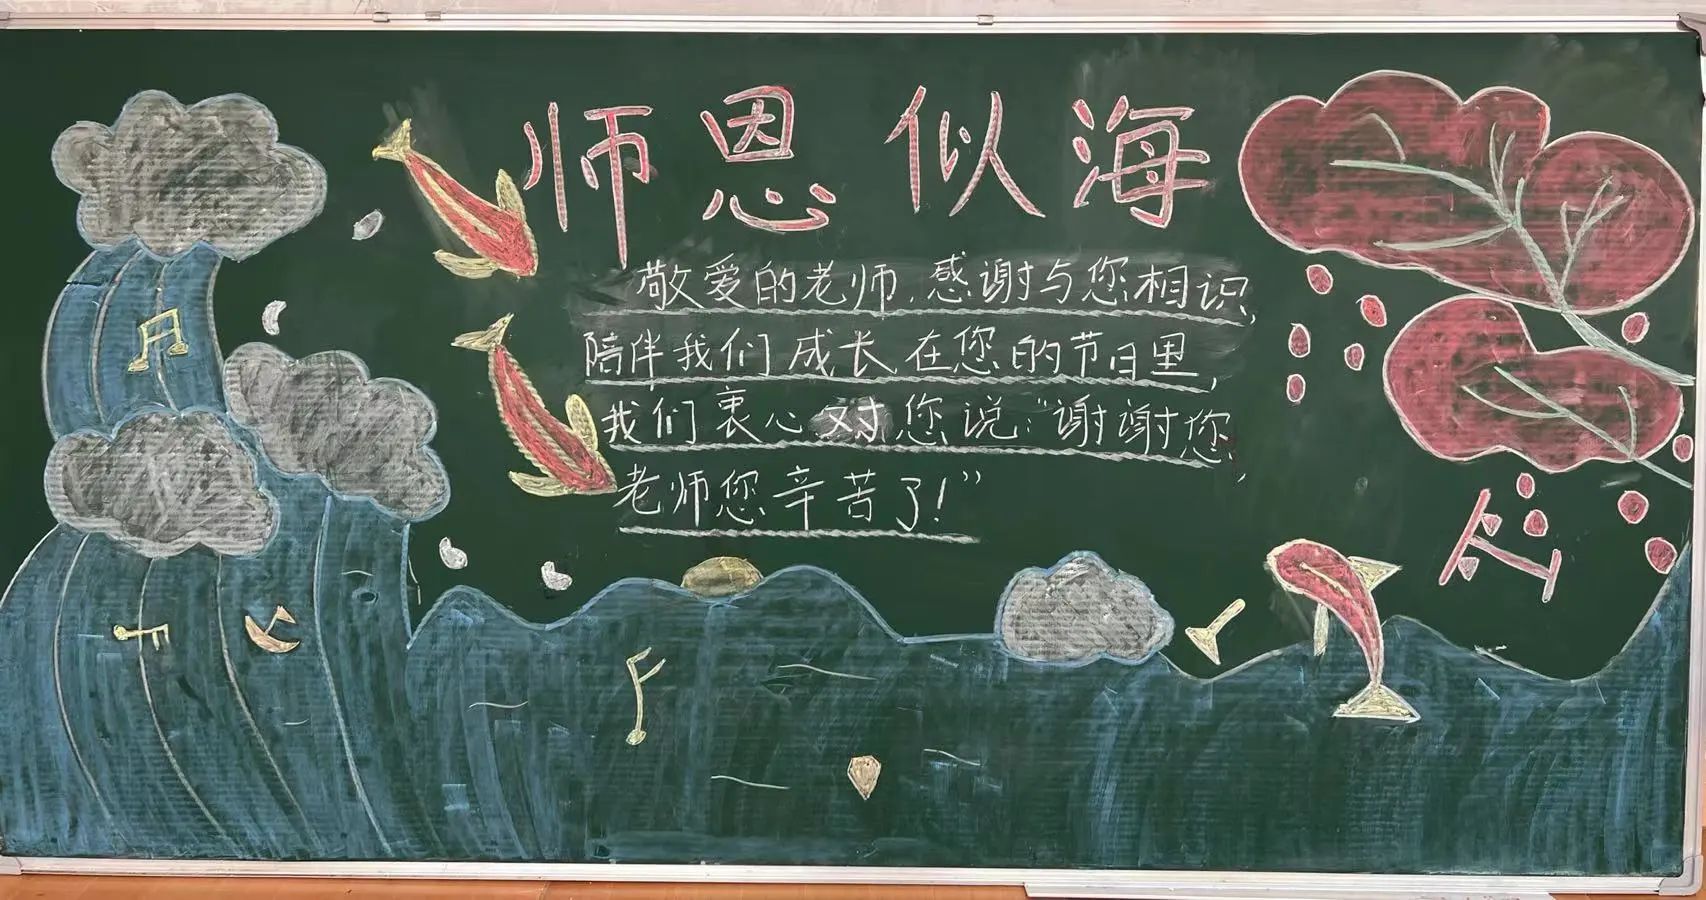 师恩似海
敬爱的老师,感谢与您相识,
陪伴我们成长在您的节日里,
我们衷心对您说:"谢谢您,
老师您辛苦了!"